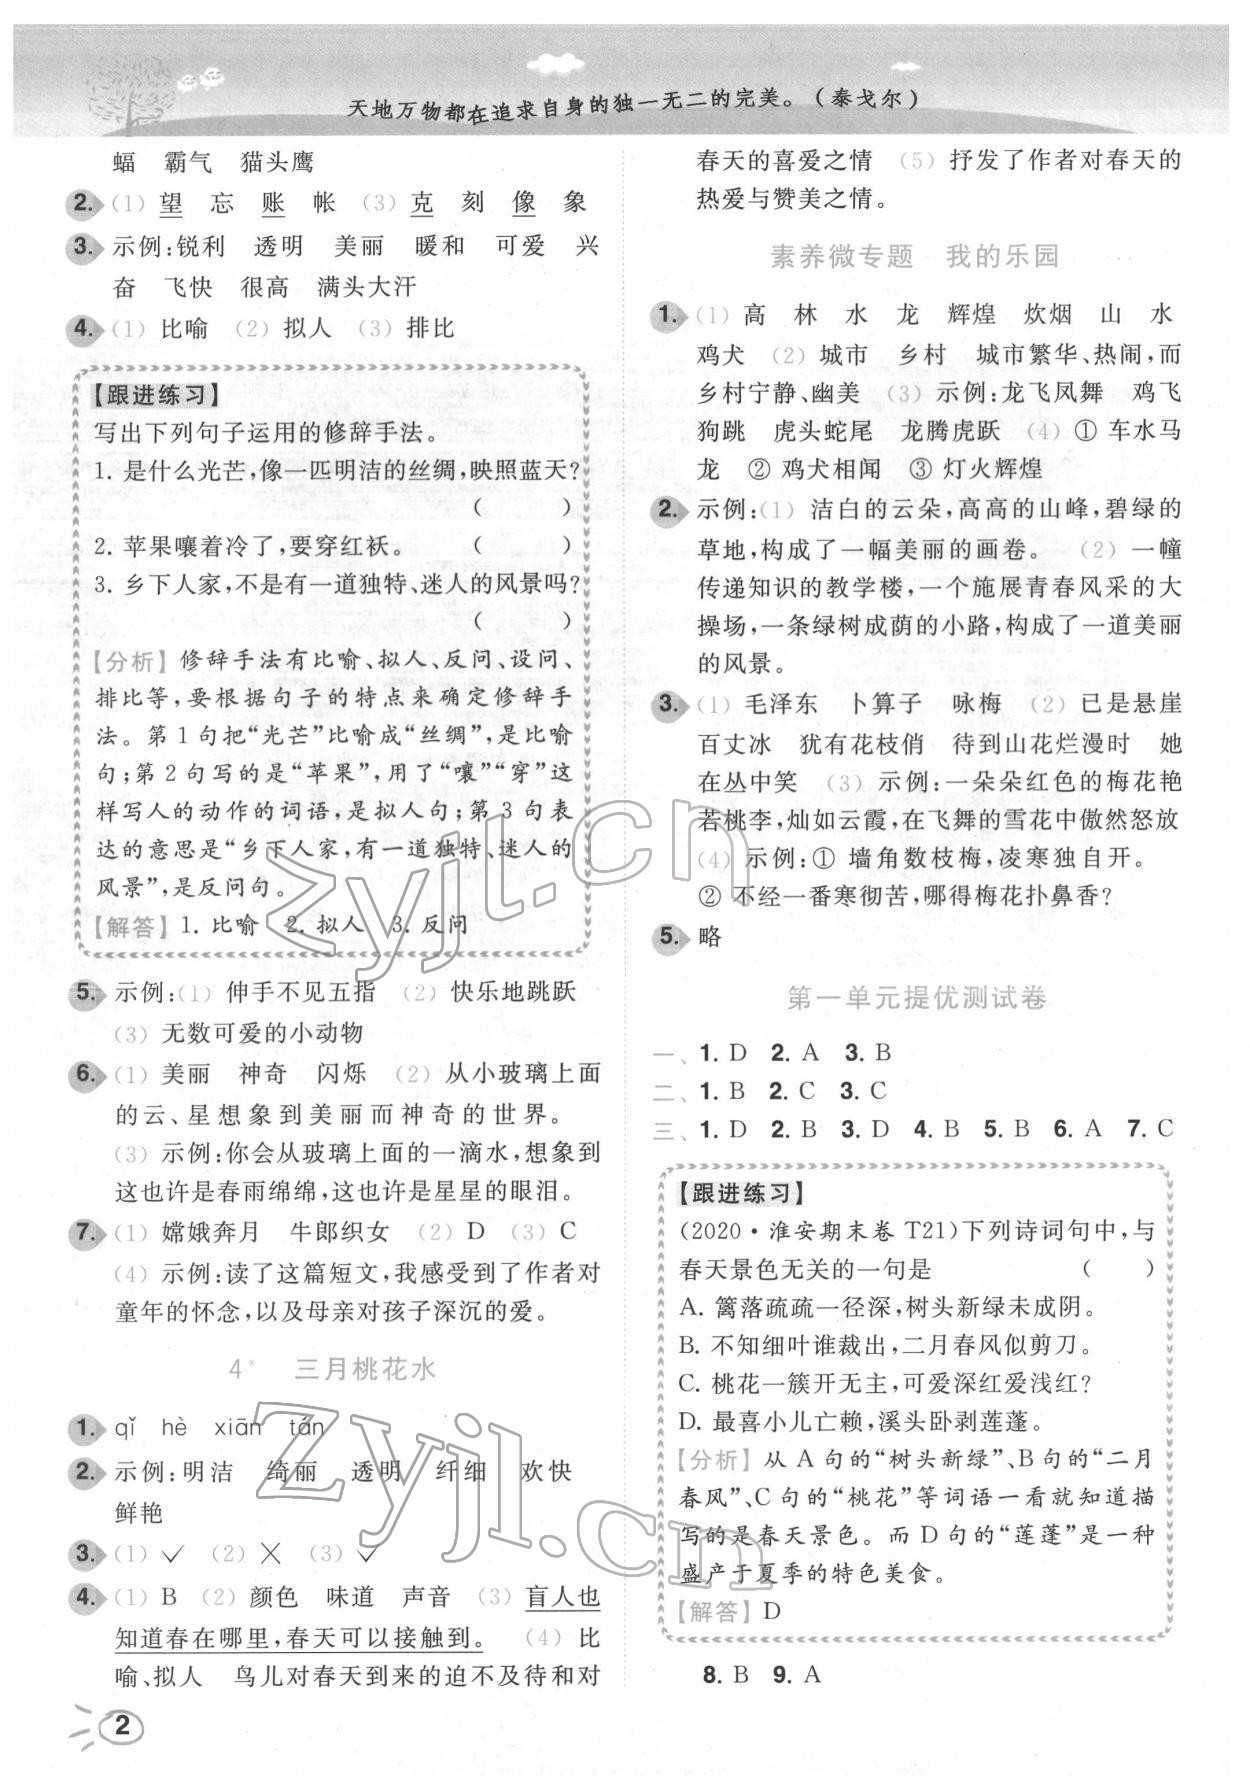 天地万物都在追求自身的独一无二的完美。（泰戈尔）
蝠　霸气　猫头鹰
2. (1) 望　忘　账　帐　(3) 克　刻　像　象
3. 示例:锐利　透明　美丽　暖和　可爱　兴
奋　飞快　很高　满头大汗
4. (1) 比喻　(2) 拟人　(3) 排比
【跟进练习】
写出下列句子运用的修辞手法。
1. 是什么光芒,像一匹明洁的丝绸,映照蓝天?
(　　)
2. 苹果嚷着冷了,要穿红袄。　(　　)
3. 乡下人家,不是有一道独特、迷人的风景吗?
(　　)
【分析】修辞手法有比喻、拟人、反问、设问、
排比等,要根据句子的特点来确定修辞手
法。第1句把“光芒”比喻成“丝绸”,是比喻
句;第2句写的是“苹果”,用了“嚷”“穿”这
样写人的动作的词语,是拟人句;第3句表
达的意思是“乡下人家,有一道独特、迷人的
风景”,是反问句。
【解答】1. 比喻　2. 拟人　3. 反问
5. 示例:(1) 伸手不见五指　(2) 快乐地跳跃
(3) 无数可爱的小动物
6. (1) 美丽　神奇　闪烁　(2) 从小玻璃上面
的云、星想象到美丽而神奇的世界。
(3) 示例:你会从玻璃上面的一滴水,想象到
这也许是春雨绵绵,这也许是星星的眼泪。
7. (1) 嫦娥奔月　牛郎织女　(2) D　(3) C
(4) 示例:读了这篇短文,我感受到了作者对
童年的怀念,以及母亲对孩子深沉的爱。
4*　三月桃花水
1. qǐ　hè　xiān　tán
2. 示例:明洁　绮丽　透明　纤细　欢快
鲜艳
3. (1) ✓　(2) ✕　(3) ✓
4. (1) B　(2) 颜色　味道　声音　(3) 盲人也
知道春在哪里,春天可以接触到。　(4) 比
喻、拟人　鸟儿对春天到来的迫不及待和对
2
春天的喜爱之情　(5) 抒发了作者对春天的
热爱与赞美之情。
素养微专题　我的乐园
1. (1) 高　林　水　龙　辉煌　炊烟　山　水
鸡犬　(2) 城市　乡村　城市繁华、热闹,而
乡村宁静、幽美　(3) 示例:龙飞凤舞　鸡飞
狗跳　虎头蛇尾　龙腾虎跃　(4) ① 车水马
龙　② 鸡犬相闻　③ 灯火辉煌
2. 示例:(1) 洁白的云朵,高高的山峰,碧绿的
草地,构成了一幅美丽的画卷。　(2) 一幢
传递知识的教学楼,一个施展青春风采的大
操场,一条绿树成荫的小路,构成了一道美丽
的风景。
3. (1) 毛泽东　卜算子　咏梅　(2) 已是悬崖
百丈冰　犹有花枝俏　待到山花烂漫时　她
在丛中笑　(3) 示例:一朵朵红色的梅花艳
若桃李,灿如云霞,在飞舞的雪花中傲然怒放
(4) 示例:① 墙角数枝梅,凌寒独自开。
② 不经一番寒彻苦,哪得梅花扑鼻香?
5. 略
第一单元提优测试卷
一、1. D　2. A　3. B
二、1. B　2. C　3. C
三、1. D　2. B　3. D　4. B　5. B　6. A　7. C
【跟进练习】
(2020·淮安期末卷 T21)下列诗词句中,与
春天景色无关的一句是　(　　)
A. 篱落疏疏一径深,树头新绿未成阴。
B. 不知细叶谁裁出,二月春风似剪刀。
C. 桃花一簇开无主,可爱深红爱浅红?
D. 最喜小儿亡赖,溪头卧剥莲蓬。
【分析】从A句的“树头新绿”、B句的“二月
春风”、C句的“桃花”等词语一看就知道描
写的是春天景色。而D句的“莲蓬”是一种
盛产于夏季的特色美食。
【解答】D
8. B　9. A
zyjl.cn
zyjl.cn